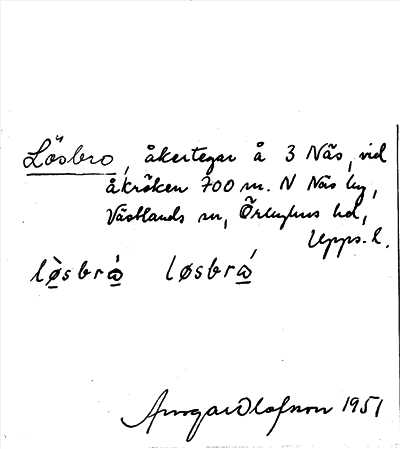 Lösbro, åkertegar å 3 Näs, vid
åkröken 700 m. N Näs by,
Västlands sn, Örbyhus hd,
Upps. l.
lø̀sbrá̲ løsbrá̲
Olofsson 1951